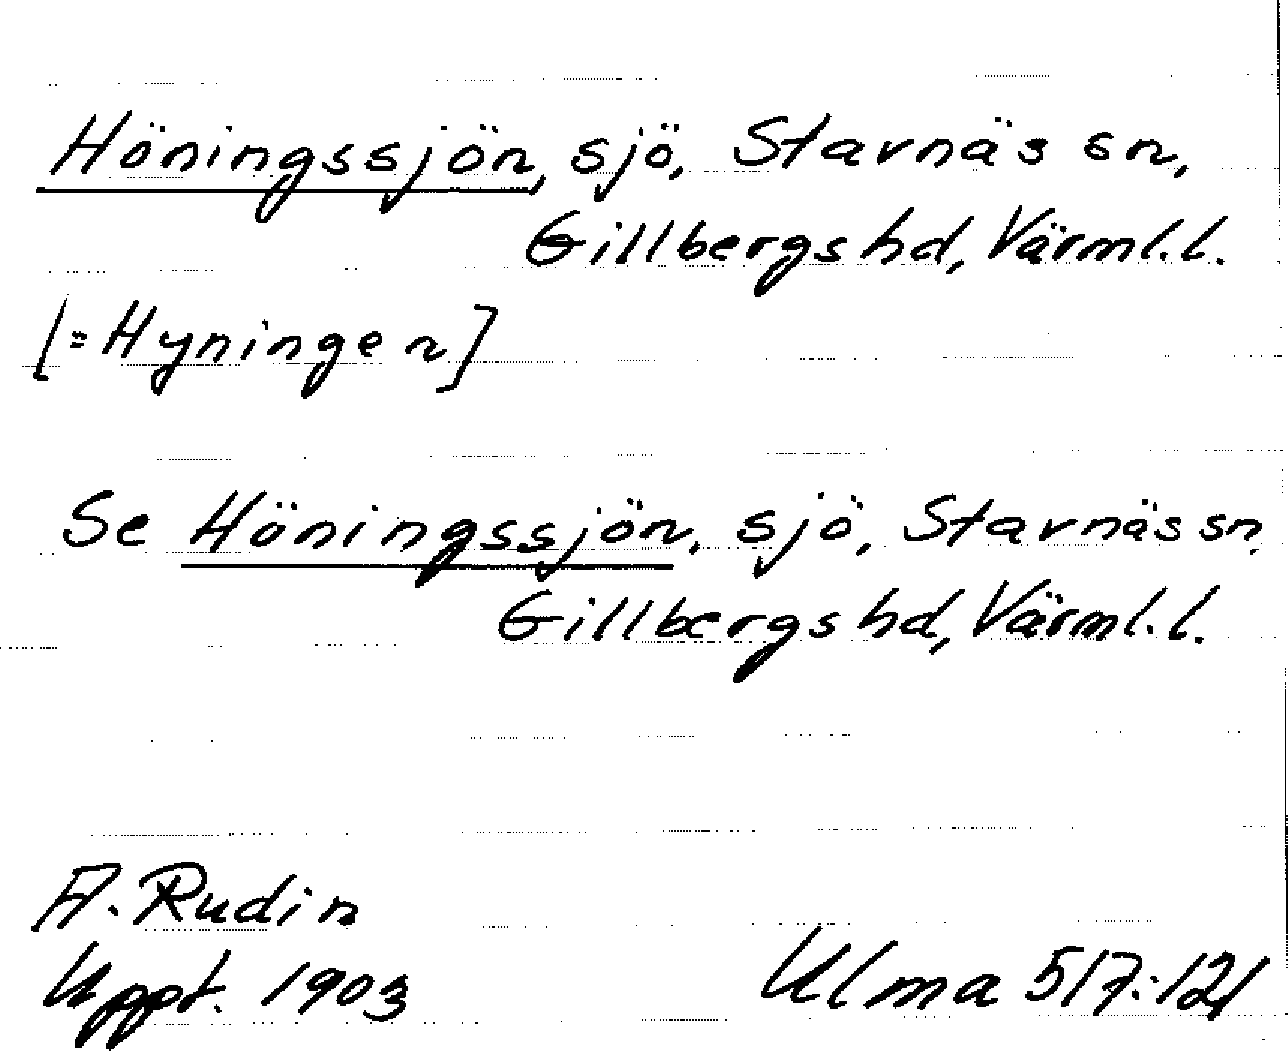 Höningssjön, sjö, Stavnäs sn,
Gillbergs hd, Värml. l.
[= Hyningen]
Se Höningssjön, sjö, Stavnäs sn
Gillbergs hd, Värml. l.
A. Rudin
Uppt. 1903
Ulma 517:121